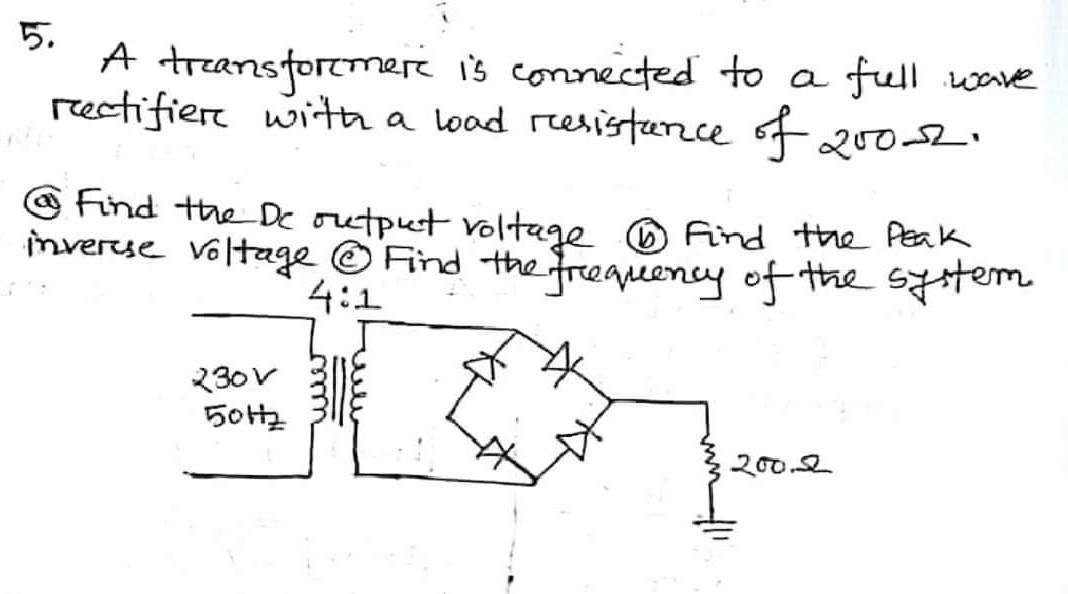 5.
A transformer is connected to a full wave
rectifier with a load resistance of 200Ω.
ⓐ Find the DC output voltage ⓑ Find the Peak
inverse voltage ⓒ Find the frequency of the system
4:1
230V
50Hz
200Ω